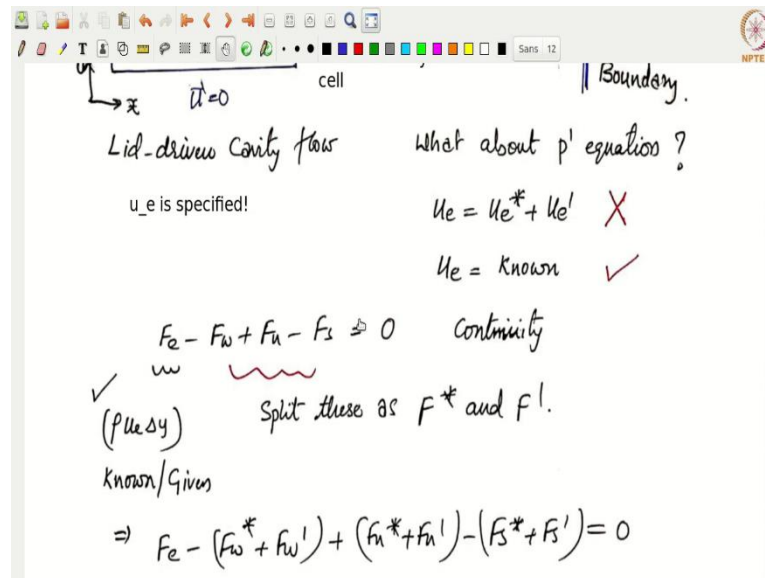 Sans 12
NPTE
cell
Boundary.
x
ū=0
Lid-driven Cavity flow
What about p' equation?
u_e is specified!
Ue = Ue* + Ue' X
Ue = Known ✓
Fe - Fw + Fn - Fs = 0 Continuity
✓
(ρUeΔy)
Split these as F* and F'.
Known/Given
⇒ Fe - (Fw* + Fw') + (Fn* + Fn') - (Fs* + Fs') = 0